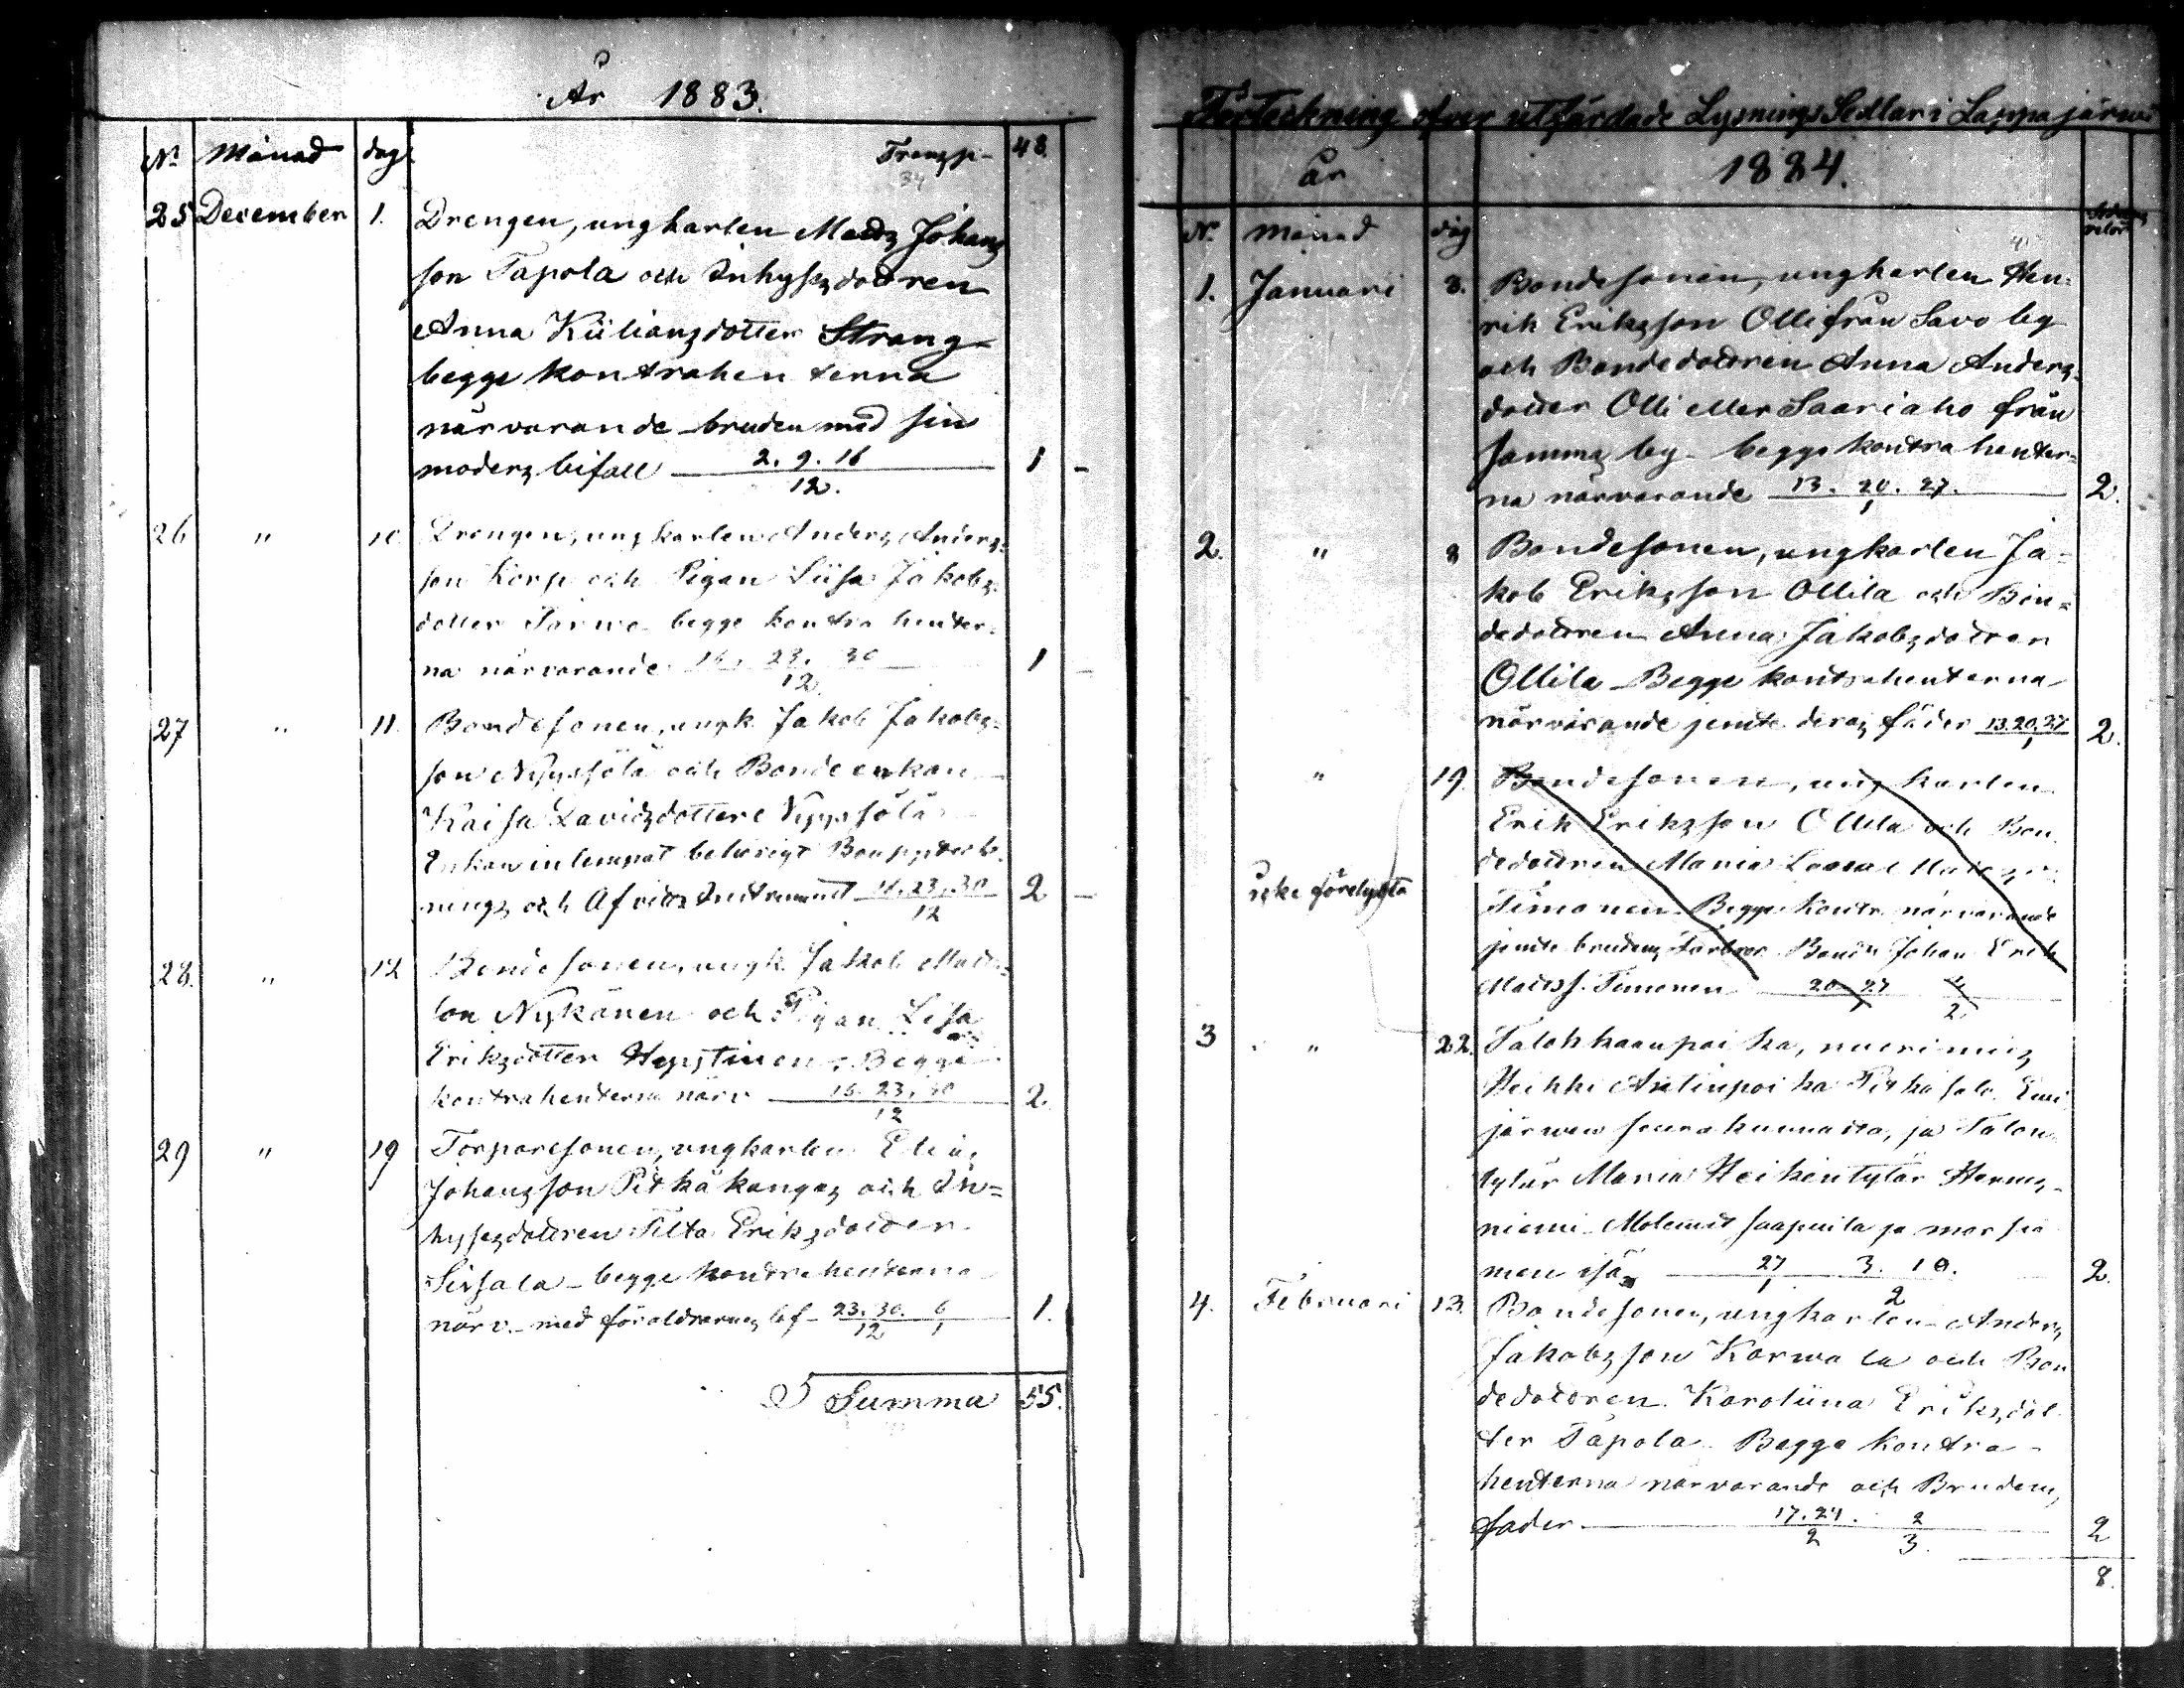 År 1883.
No Månad dag Transp- 48.
25 December 1. Drengen, ungkarlen Matts Johans
son Tapola och Inhyses dottren
Anna Kiiliansdotter Strang-
begge kontrahenterna
närvarande bruden med sin
moders bifall 2. 9. 16 1 -
12.
26 " 10 Drengen, ungkarlen Anders Anders-
son Korp och Pigan Liisa Jakobs-
dotter Järwe begge kontrahenter-
na närvarande 16. 23. 30 1 -
12
27 " 11. Bondesonen, ungk Jakob Jakobs-
son Nissölä och Bonde enkan
Kaisa Davidsdotter
Enkan inlempat behörigt Bouppteck-
nings och Afvittr Instrument 16. 23. 30 2 -
12
28. " 12 Bondesonen, ungk. Jakob Matts-
son Nykänen och Pigan Lisa
Eriksdotter Begge
kontrahenterna närv 16. 23. 30 2.
12
29 " 19 Torparesonen, ungkarlen Elias
Johansson Pitkäkangas och In-
hysesdottren Tilta Eriksdotter
Sissala - begge kontrahenterna
närv. - med föräldrarnes bif - 23. 30. 6 1.
12 1
Summa 55.
Förteckning öfver utfärdade Lysnings Sedlar i Lappajärwi
år 1884.
No Månad dag
1. Januari 8. Bondesonen, ungkarlen Hen-
rik Eriksson Olli från Savo by
och Bondedottren Anna Anders-
dotter Olli eller Saariaho från
samma by - begge kontrahenter-
na närvarande 13. 20. 27. 2.
1
2. " 8 Bondesonen, ungkarlen Ja-
kob Eriksson Ollila och Bon-
dedottren Anna Jakobsdotter
Ollila - Begge kontrahenterna
närvarande jemte deras fäder 13. 20. 27 2.
1
" 19. Bondesonen, ungkarlen
Erik Eriksson Ollila och Bon-
dedottren Maria
icke förelysta Timonen - Begge Kontr. närvarande
jemte brudens Farbror Bonde Johan Erik
Matss. Timonen 20. 27
1 2
3 " 22. Talokkaanpoika, nuorimies
Heikki Antinpoika Pitkäsalo Ewi
järwen seurakunnasta, ja Talon
tytär Maria Heikintytär Hernes-
niemi - Molemat saapuilla ja morsia
men isä 27 3. 10. 2.
1 2
4. Februari 13. Bondesonen, ungkarlen Anders
Jakobsson Karwala och Bon
dedottren Karoliina Eriksdot
ter Tapola. Begge Kontra-
henterna närvarande och Brudens
fader. 17. 24. 2 2
2 3.
8.